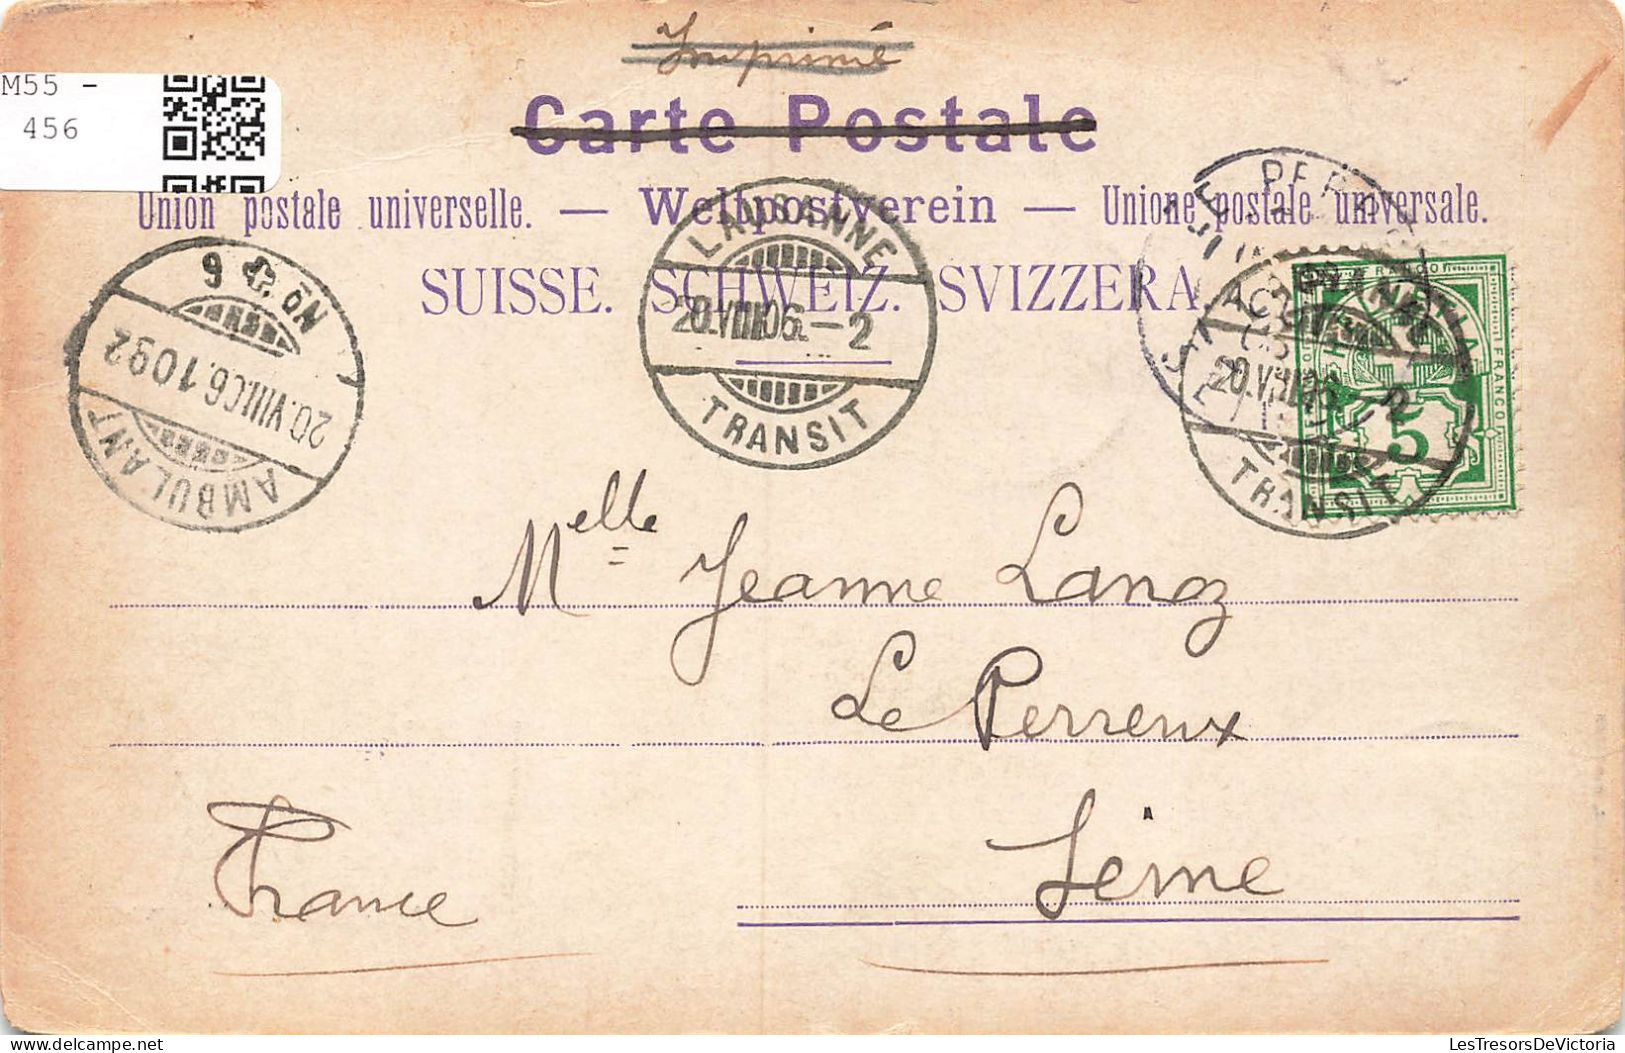 Imprimé
M55 -
456
Carte Postale
Union postale universelle. — Weltpostverein — Unione postale universale.
SUISSE. SCHWEIZ. SVIZZERA.
LAUSANNE
20.VIII.06.–2
TRANSIT
AMBULANT
20.VIII.06.1092
No 6
LE PERREUX
20.VIII.06
TRANSIT
FRANCO
5
Melle Jeanne Lang
Le Perreux
Seine
France
LesTresorsDeVictoria
delcampe.net